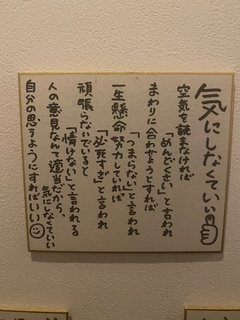 気にしなくていい
空気を読まなければ
「めんどくさい」と言われ
まわりに合わせようとすれば
「つまらない」と言われ
一生懸命努力していれば
「必死すぎ」と言われ
頑張らないでいると
「情けない」と言われる
人の意見なんて適当だから、
気にしなくていい
自分の思うようにすればいい